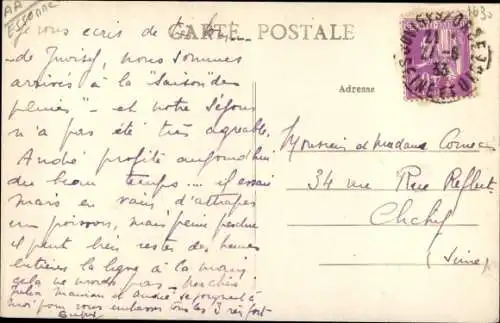 AA
ESSONNE
CARTE POSTALE
Je vous écris de
de Juvisy, nous sommes
arrivés à la "saison des
pluies" - et notre séjour
n'a pas été très agréable.
André profite aujourd'hui
du beau temps.... il essaie
mais en vain d'attraper
un poisson, mais peine perdue
il peut bien rester des heures
entières la ligne à la main
cela ne mord pas
maman et André se joignent à
moi pour vous embrasser tous les 3 bien fort
Adresse
Monsieur et Madame
34 Rue Reflut
Clichy
(Seine)
27-6
33
SEINE ET OISE